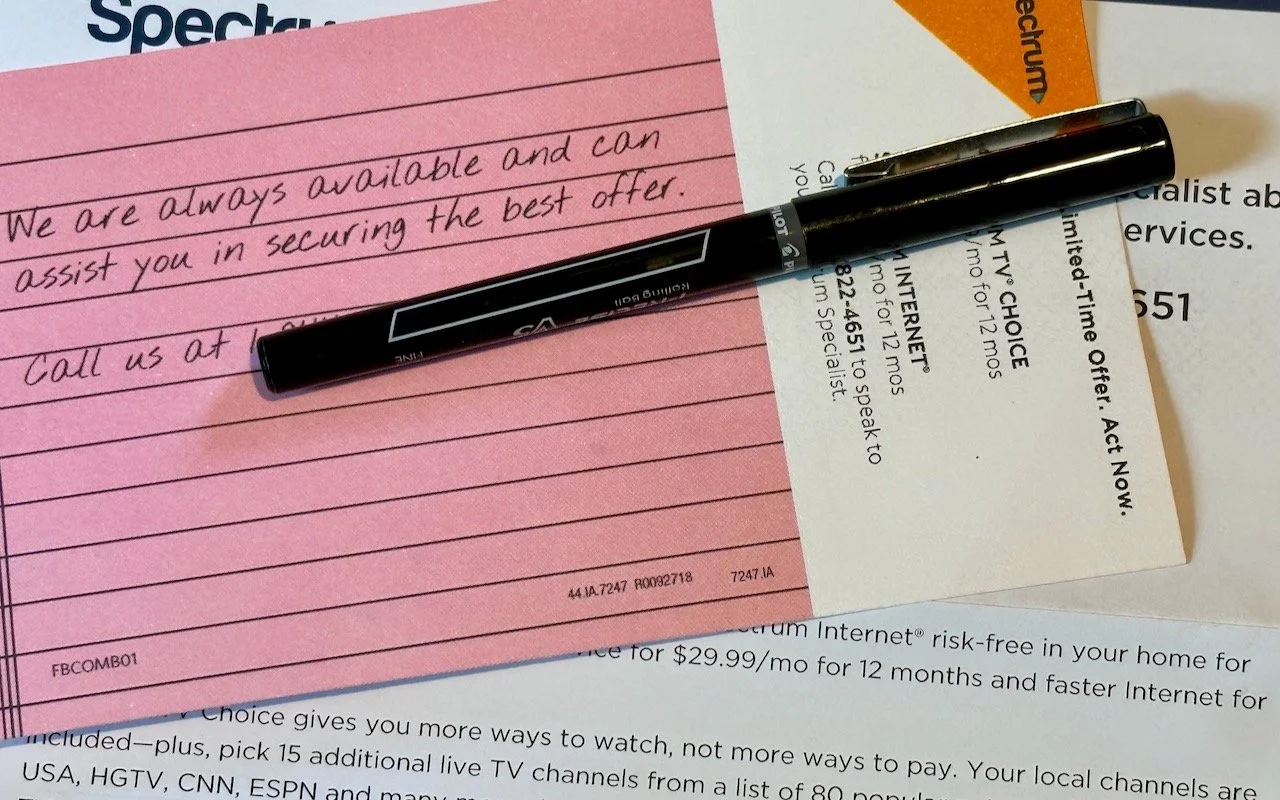 Spectrum
We are always available and can
assist you in securing the best offer.
Call us at
44.IA.7247 R0092718 7247.IA
FBCOMB01
PILOT
Rolling Ball
V5
FINE
ectrum
Limited-Time Offer. Act Now.
M TV® CHOICE
/mo for 12 mos
M INTERNET®
/mo for 12 mos
822-4651 to speak to
um Specialist.
cialist ab
ervices.
651
ctrum Internet® risk-free in your home for
for $29.99/mo for 12 months and faster Internet for
V Choice gives you more ways to watch, not more ways to pay. Your local channels are
included—plus, pick 15 additional live TV channels from a list of 80
USA, HGTV, CNN, ESPN and many